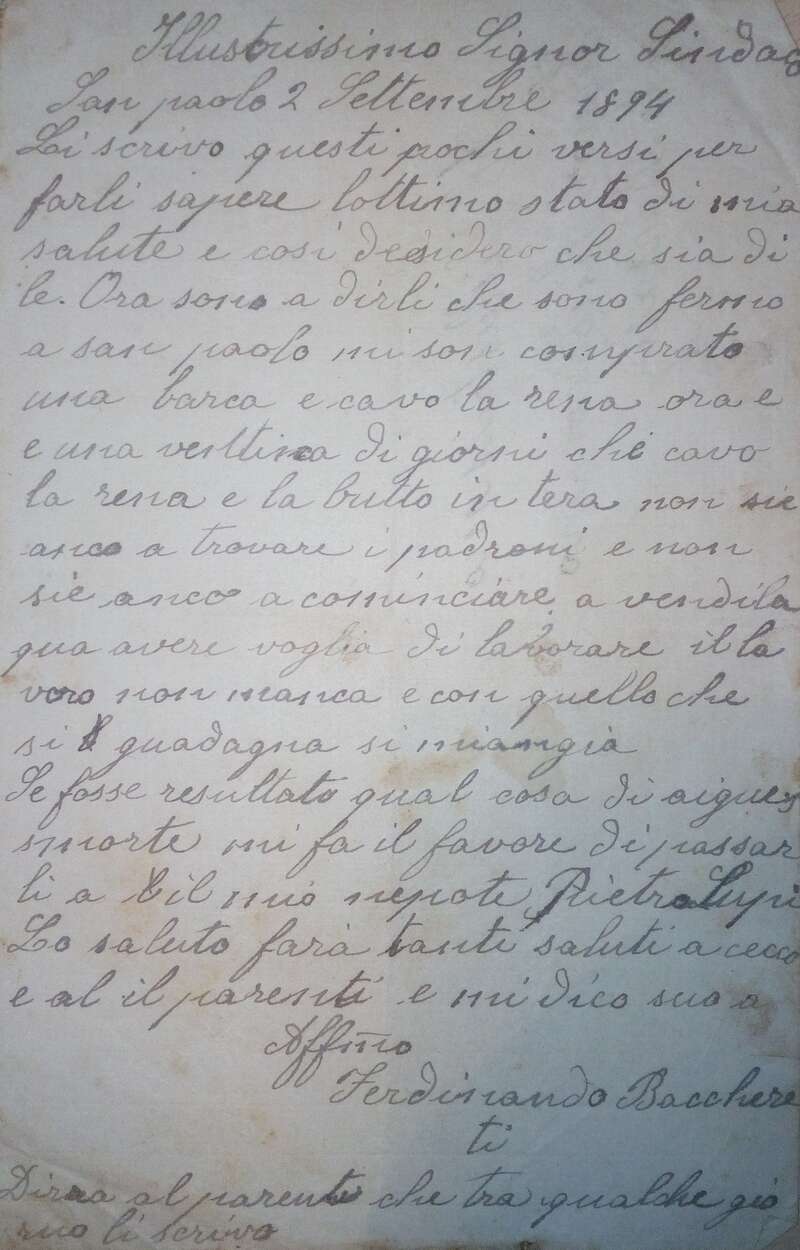 Illustrissimo Signor Sindaco
San paolo 2 Settembre 1894
Li scrivo questi pochi versi per
farli sapere lottimo stato di mia
salute e così desidero che sia di
le. Ora sono a dirli che sono fermo
a san paolo mi son comprato
una barca e cavo la rena ora e
e una venttina di giorni che cavo
la rena e la butto in tera non sie
anco a trovare i padroni e non
sie anco a cominciare a vendila
qua avere voglia di lavorare il la
voro non manca e con quello che
si guadagna si miangia
Se fosse resultato qual cosa di aigues
morte mi fa il favore di passar
li a il mio nepote Pietro Lupi
Lo saluto farà tanti saluti a cecco
e al il parenti e mi dico suo a
Affmo
Ferdinando Bacchere
ti
Dirra al parente che tra qualche gio
rno li scrivo